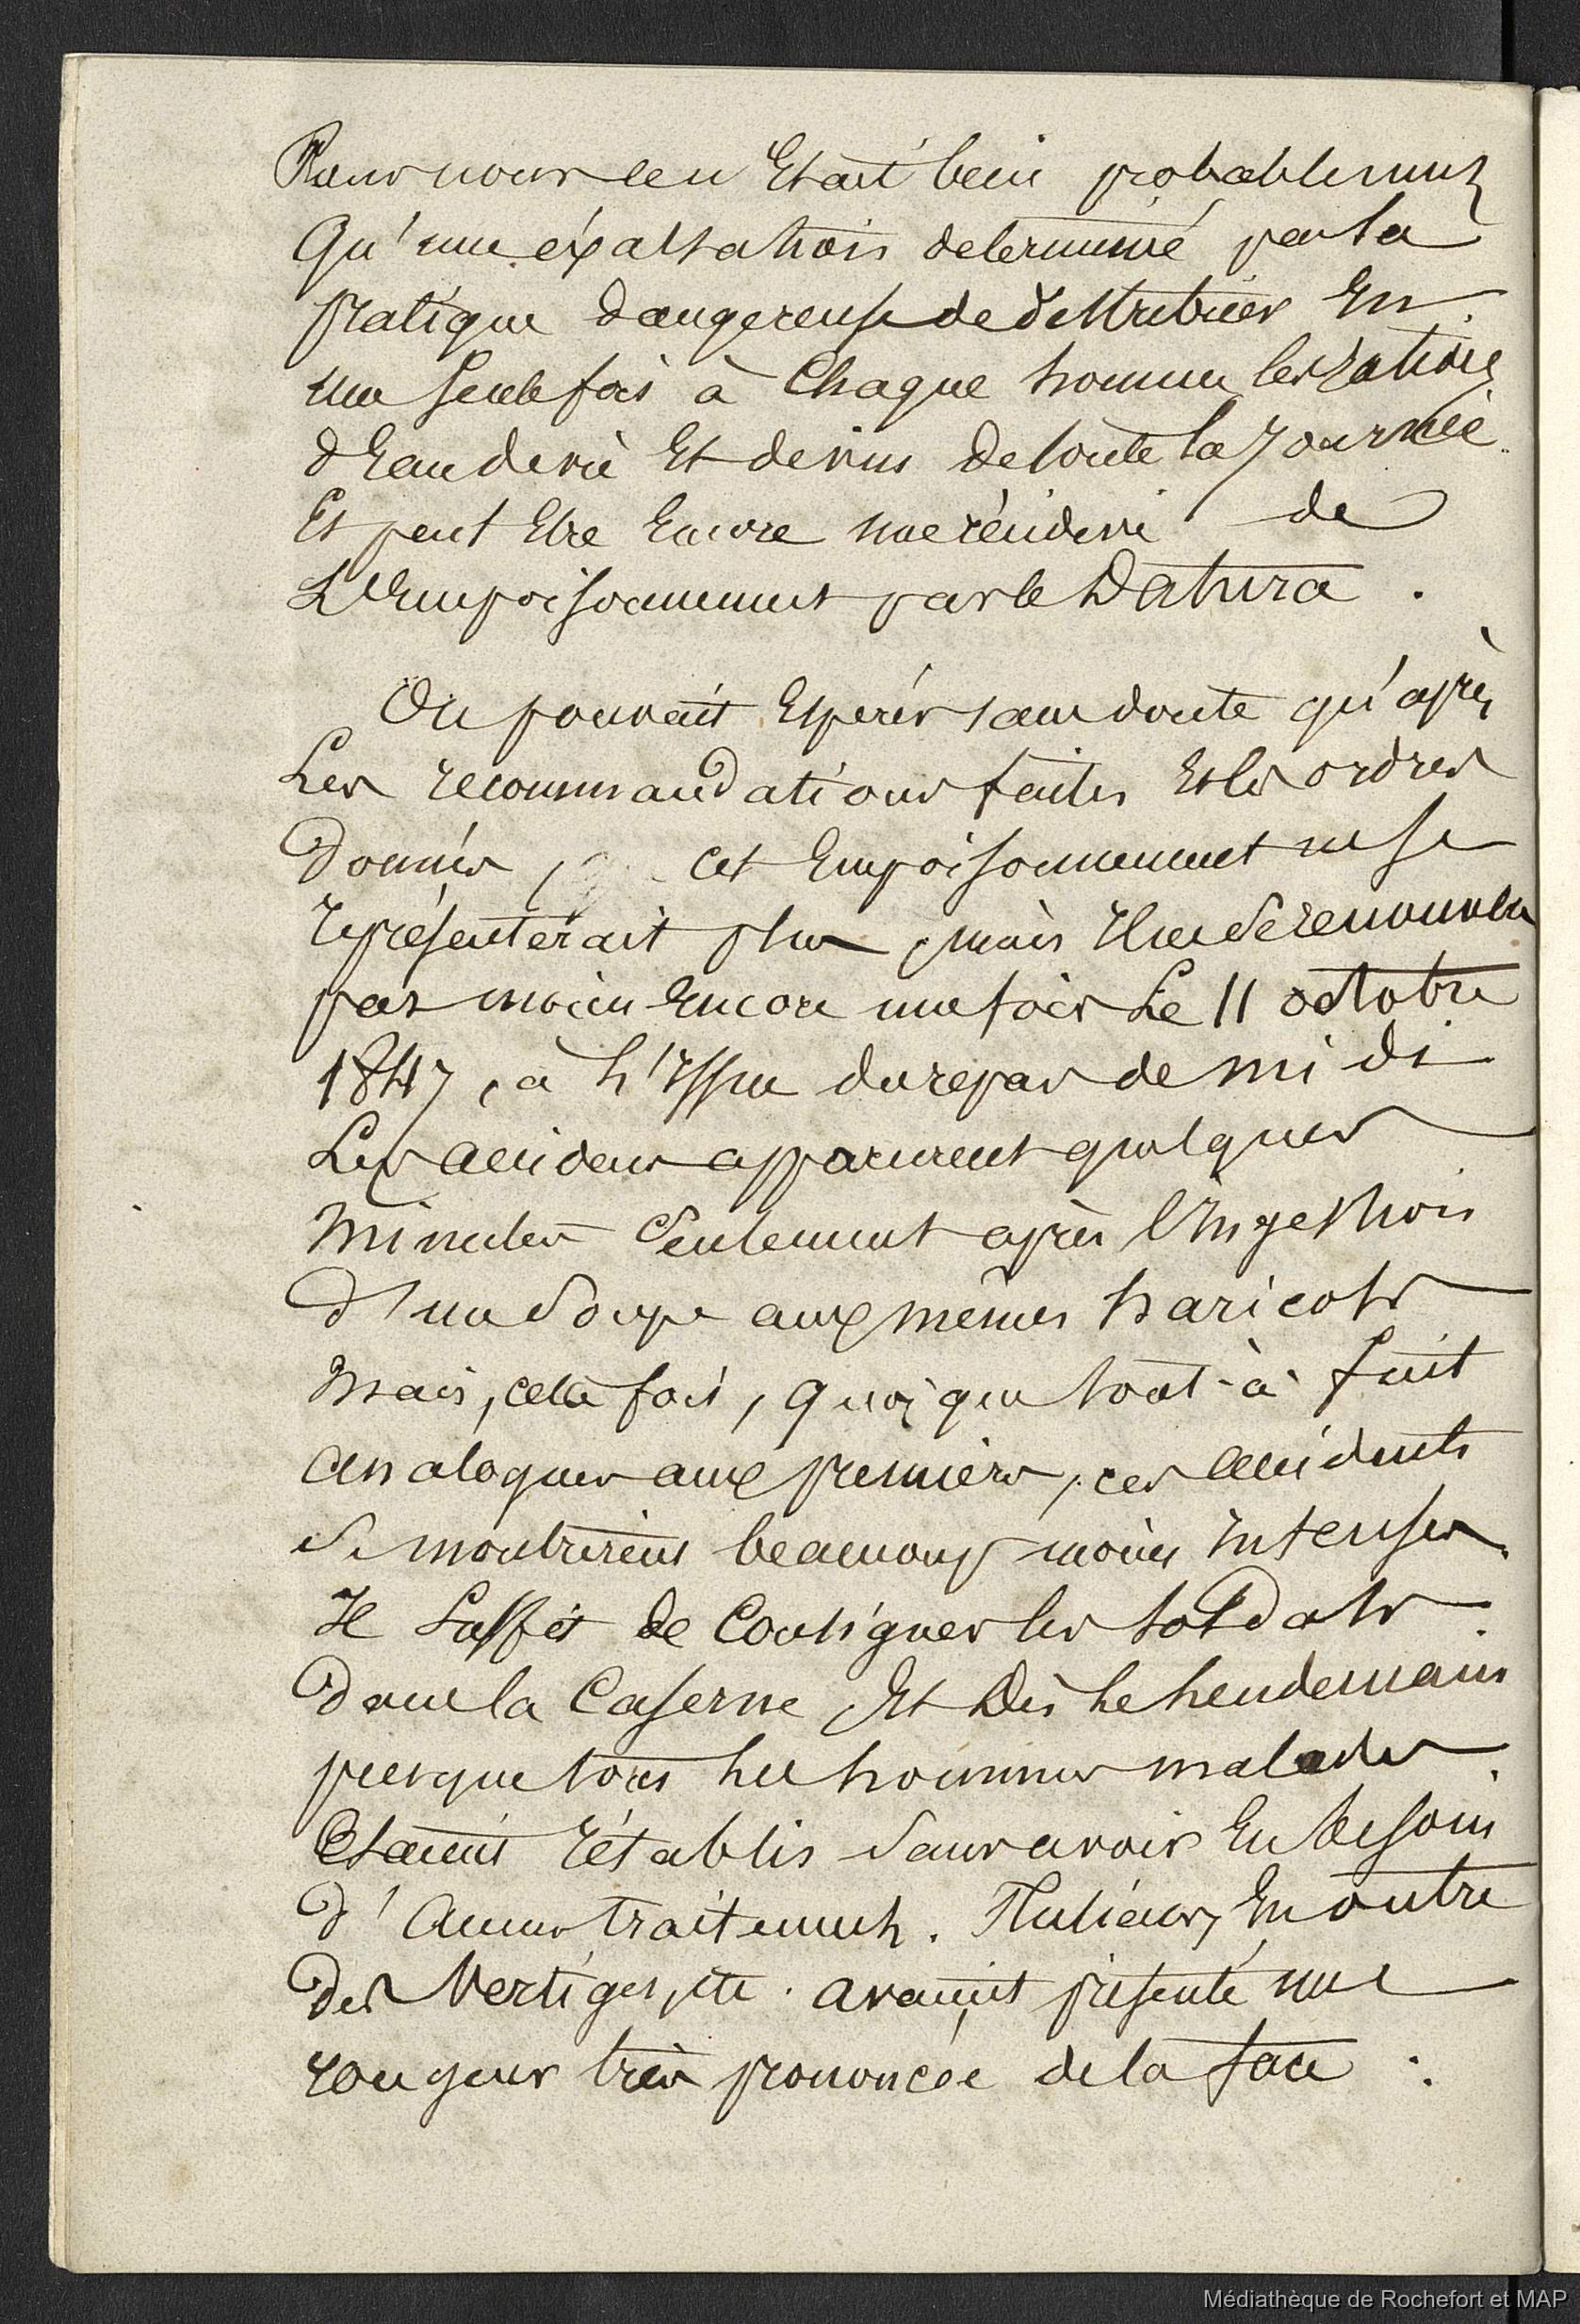 Pour nous ce n'Etait bein probablement
Qu'une éxaltation determiné par la
pratique dangereuse de distribuer En
une seule fois à Chaque homme les rations
d'Eau de vie Et de vin de toute la Journée
Et peut Etre Encore une récidive de
L'Empoisonnement par le Datura.
On pouvait Espérer sans doute qu'après
Les recommandations faites Et les ordres
Donnés, cet Empoisonnement ne se
représenterait plus, mais Il ne se renouvela
pas moins Encore une fois Le 11 octobre
1847, à L'Issue du repas de midi
Les accidens apparurent quelques
Minutes Seulement après l'Ingestion
d'une Soupe aux mêmes haricots
Mais, cette fois, quoique tout-à-fait
Analogues aux premiers, ces accidents
Se montrèrent beaucoup moins Intenses.
Il Suffit de Consigner les soldats
Dans la Caserne, Et Dès Le Lendemain
presque tous Les hommes malades
Etaient rétablis Sans avoir Eu besoin
d'Aucun traitement. Plusieurs, En outre
Des Vertiges, etc. avaient présenté une
rougeur très prononcée de la face :
Médiathèque de Rochefort et MAP